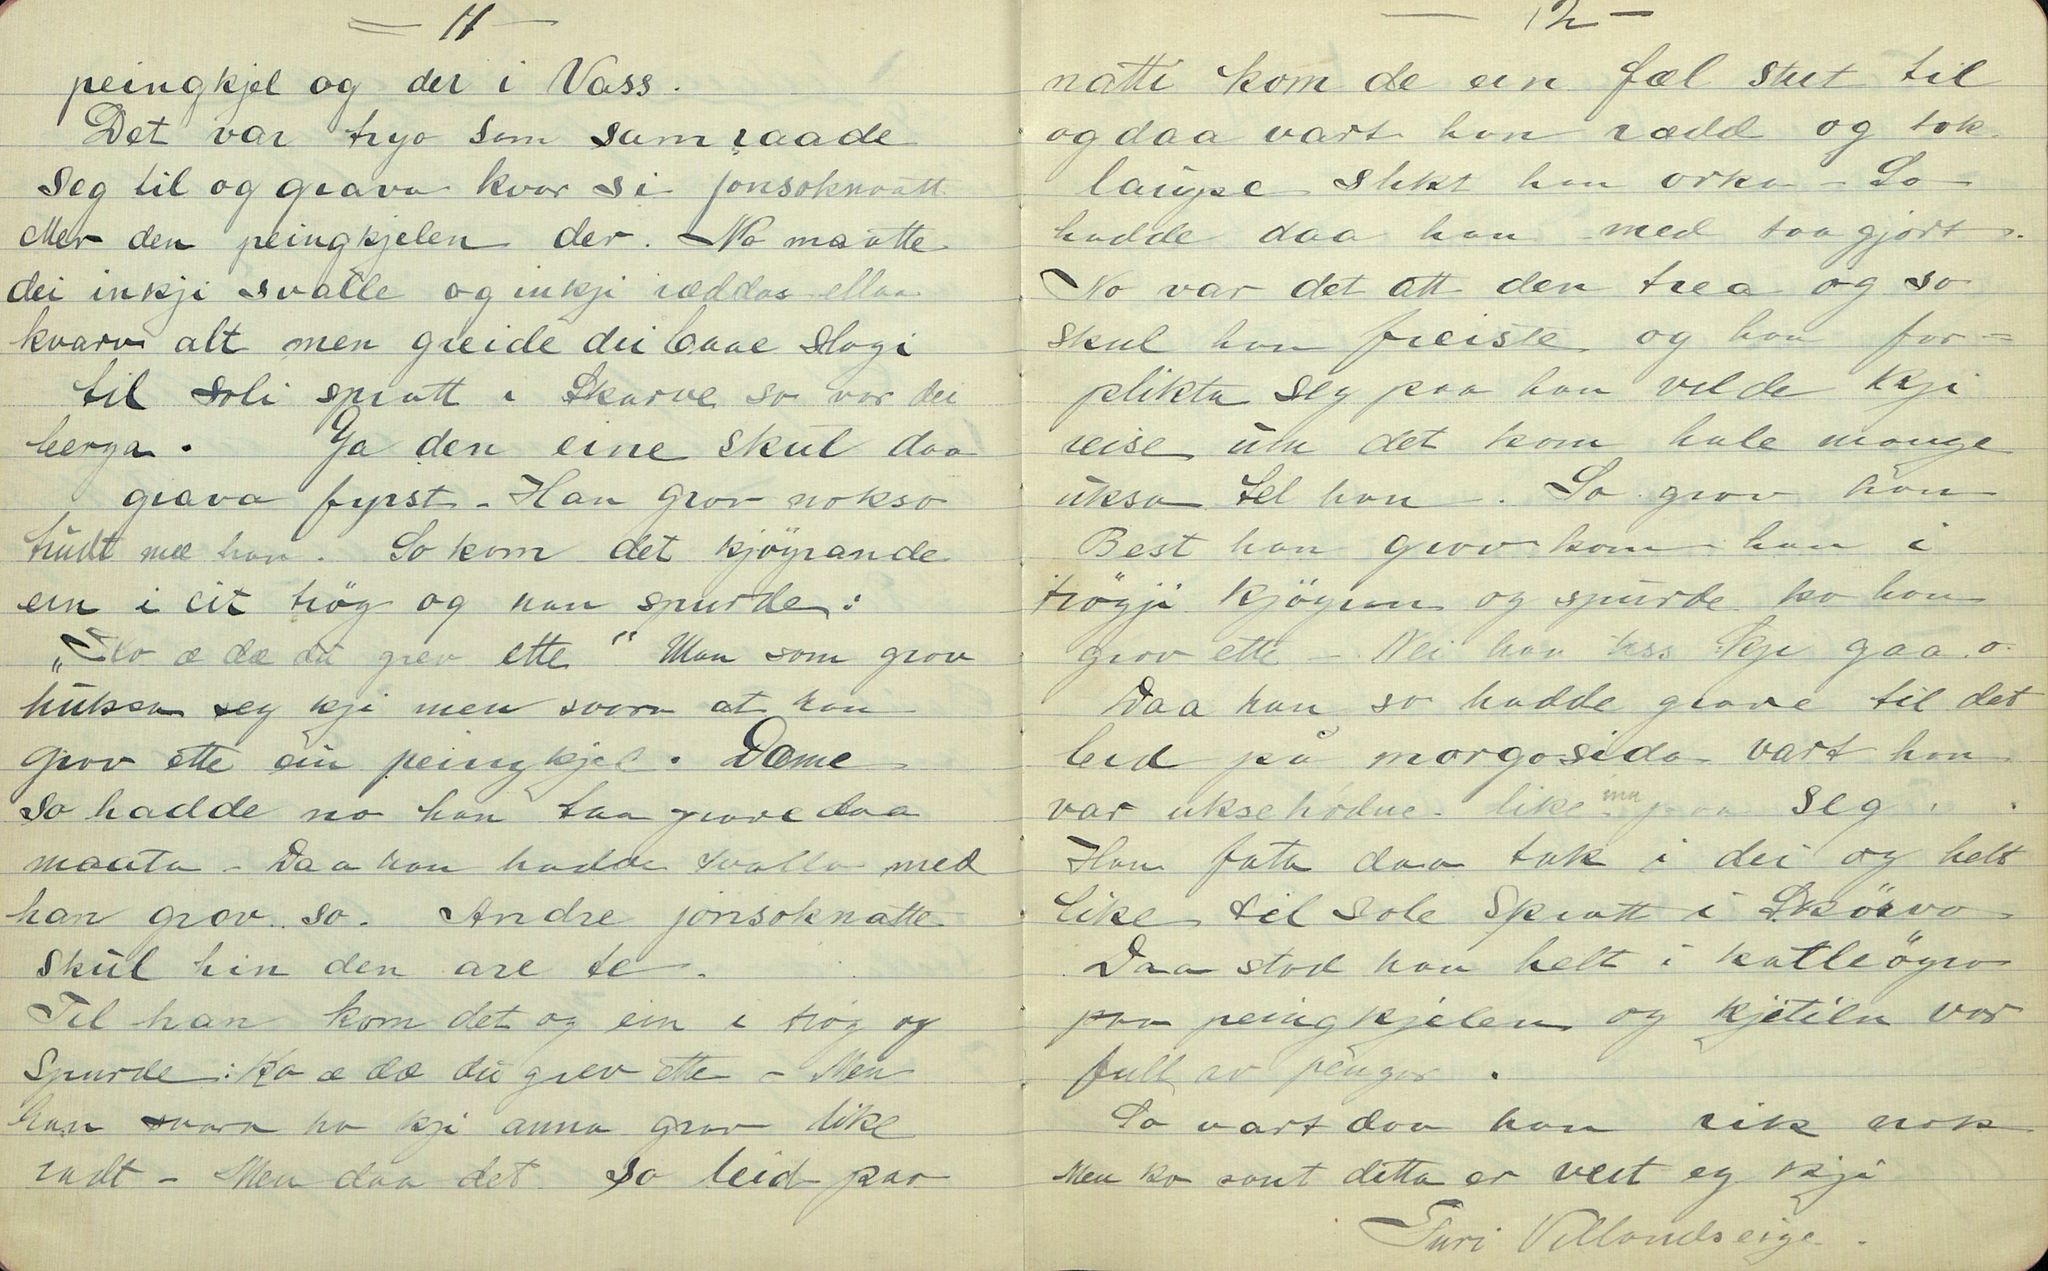 11
peingkjel og der i Vass.
Det var tryo som samraade
seg til og grava kvar si jonsoknatt
Mer den peingkjelen der. No maatte
dei inkji svalle og inkji ræddas ellaa
kvarv alt men greide dei baae slagi
til soli spratt i Skarve so var dei
berga. Ja den eine skul daa
grava fyrst - Han grov nokso
trudt me han. So kom det kjöyrande
ein i eit trög og han spurde:
"Ko æ dæ du grev ette" Man som grov
huksa seg kji men svara at han
grov ette ein peingkjel. Dæme
so hadde no han taa grave daa
maata - Daa han hadde svalla med
han grov so. Andre jonsoknatte
skul hin den are te.
Til han kom det og ein i trög og
spurde: Ko æ dæ du grev ette - Men
han svara ho kji anna grov like
radt - Men daa det so leid paa
12
natti kom de ein fæl stut til
og daa vart han rædd og tok
laupe slikt han orka - So
hadde daa han med taa gjort.
No var det att den trea og so
skul han freiste og han for=
plikta seg paa han vilde kji
reise um det kom hale mange
uksa tel han. So grov han
Best han grov kom han i
trögji kjöyran og spurde ko han
grov ette - Nei han lass kji gaa o.
Daa han so hadde grave til det
leid på morgosida vart han
var uksehödne like inn paa seg.
Han fata daa tak i dei og helt
like til sole spratt i Skörvo
Daa stod han helt i katleöyro
paa peingkjelen og kjetiln var
full av pengar.
So vart daa han rik nok
Men ko sant ditta er veit eg kji
Turi Villandseige.